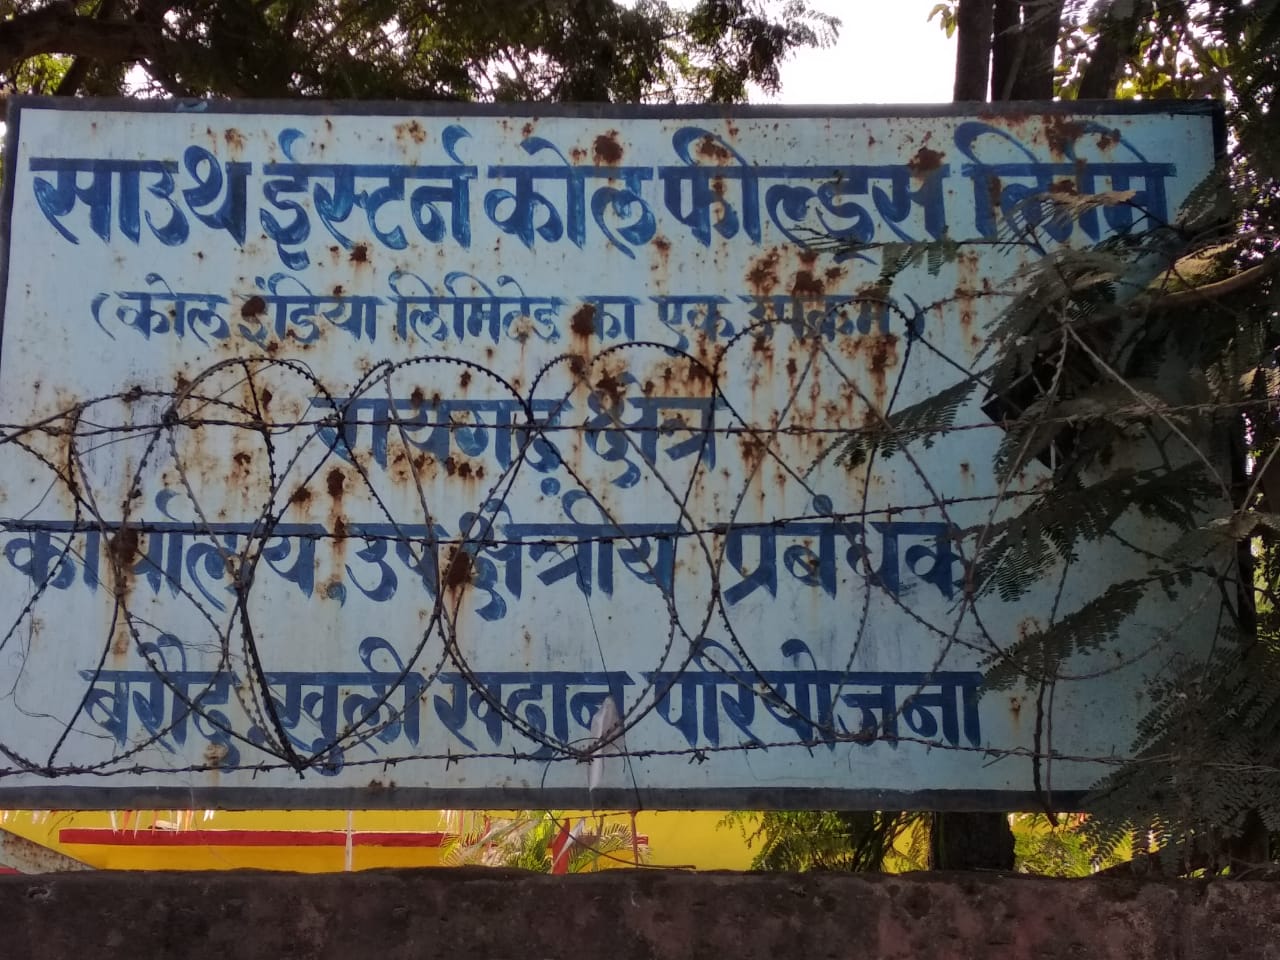 साउथ ईस्टर्न कोल फील्ड्स लिमि
(कोल इंडिया लिमिटेड का एक उपक्रम)
रायगढ़ क्षेत्र
कार्यालय, उप क्षेत्रीय प्रबंधक
बरौद खुली खदान परियोजना